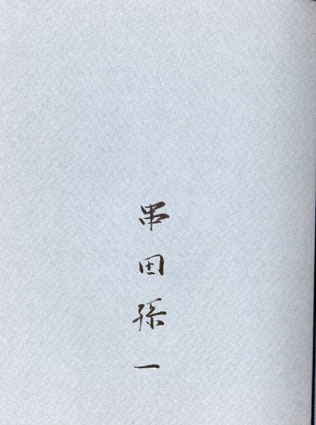 串田孫一